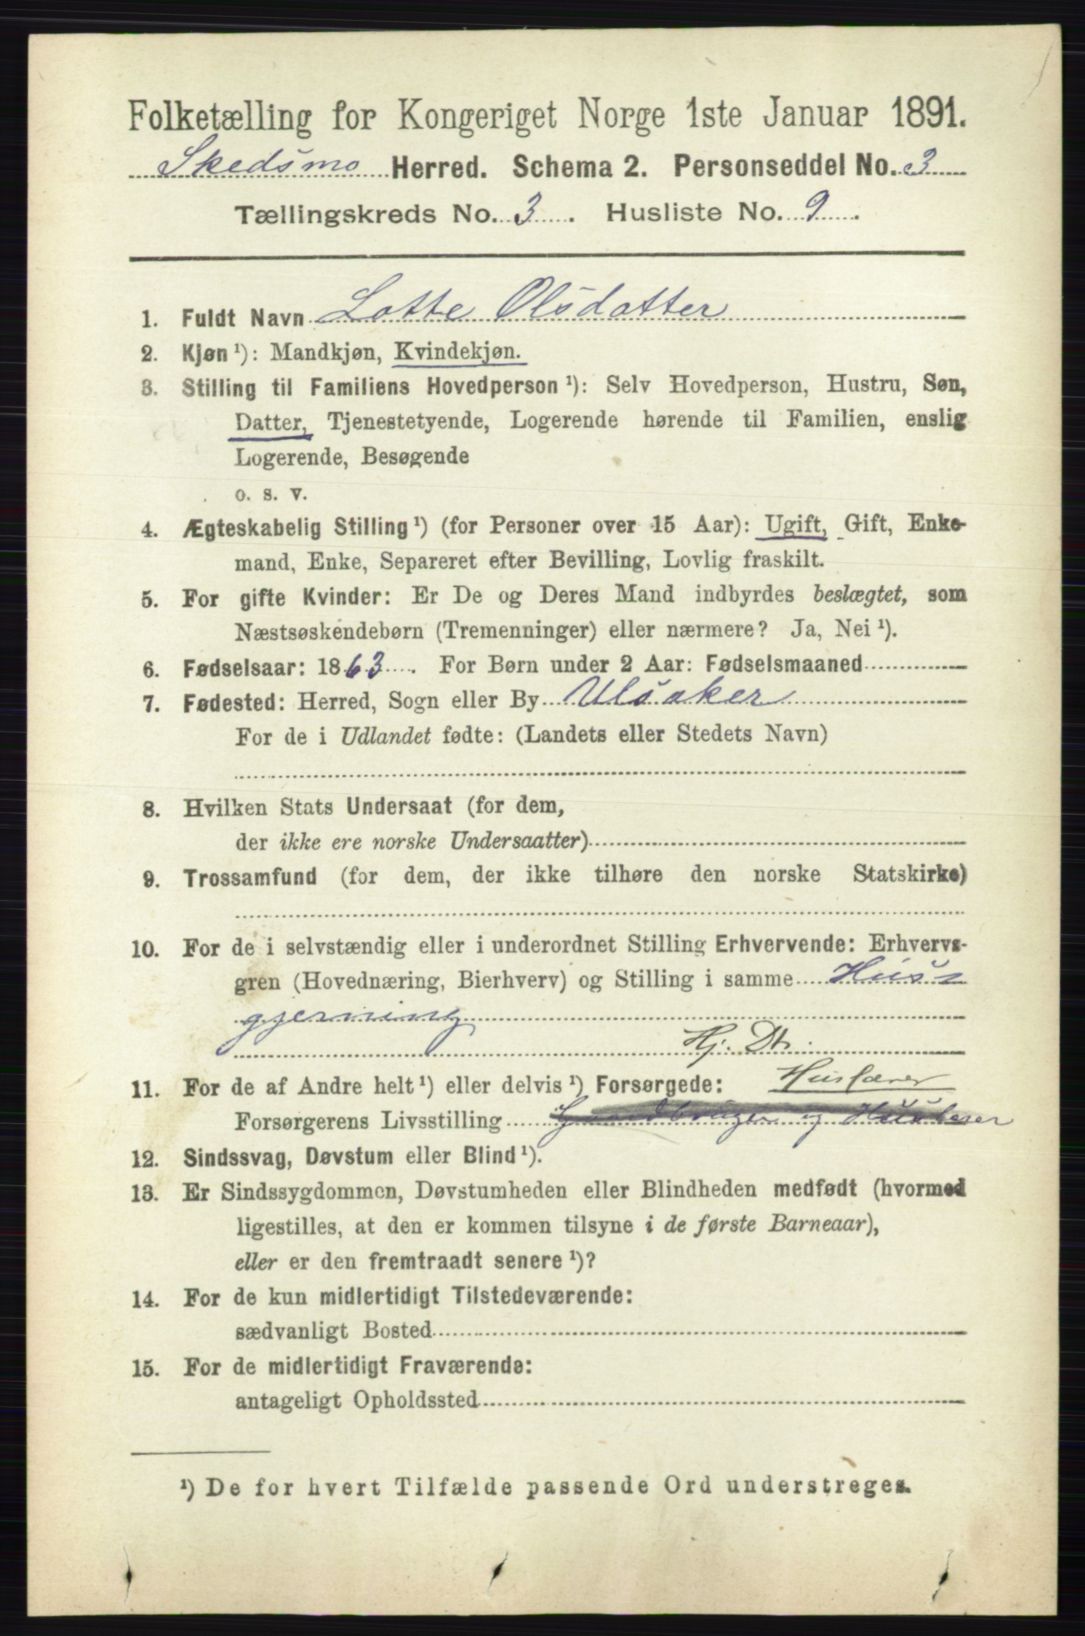 Folketælling for Kongeriget Norge 1ste Januar 1891.
Skedsmo Herred. Schema 2. Personseddel No. 3
Tællingskreds No. 3. Husliste No. 9.
1. Fuldt Navn Lotte Olsdatter
2. Kjøn ¹): Mandkjøn, Kvindekjøn.
3. Stilling til Familiens Hovedperson ¹): Selv Hovedperson, Hustru, Søn,
Datter, Tjenestetyende, Logerende hørende til Familien, enslig
Logerende, Besøgende
o. s. v.
4. Ægteskabelig Stilling ¹) (for Personer over 15 Aar): Ugift, Gift, Enke-
mand, Enke, Separeret efter Bevilling, Lovlig fraskilt.
5. For gifte Kvinder: Er De og Deres Mand indbyrdes beslægtet, som
Næstsøskendebørn (Tremenninger) eller nærmere? Ja, Nei ¹).
6. Fødselsaar: 1863. For Børn under 2 Aar: Fødselsmaaned
7. Fødested: Herred, Sogn eller By Ulsaker
For de i Udlandet fødte: (Landets eller Stedets Navn)
8. Hvilken Stats Undersaat (for dem,
der ikke ere norske Undersaatter)
9. Trossamfund (for dem, der ikke tilhøre den norske Statskirke)
10. For de i selvstændig eller i underordnet Stilling Erhvervende: Erhvervs-
gren (Hovednæring, Bierhverv) og Stilling i samme Hus-
gjerning
Hj. Dt.
11. For de af Andre helt ¹) eller delvis ¹) Forsørgede: Husfærer
Forsørgerens Livsstilling og
12. Sindssvag, Døvstum eller Blind ¹).
13. Er Sindssygdommen, Døvstumheden eller Blindheden medfødt (hvormed
ligestilles, at den er kommen tilsyne i de første Barneaar),
eller er den fremtraadt senere ¹)?
14. For de kun midlertidigt Tilstedeværende:
sædvanligt Bosted
15. For de midlertidigt Fraværende:
antageligt Opholdssted
¹) De for hvert Tilfælde passende Ord understreges.